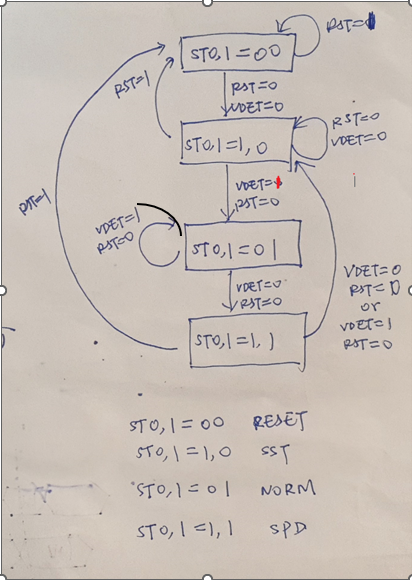 RST=
ST0,1=00
RST=1
RST=0
VDET=0
ST0,1=1,0
RST=0
VDET=0
VDET=
RST=0
RST=1
VDET=1
RST=0
ST0,1=01
VDET=0
RST=0
ST0,1=1,1
VDET=0
RST=0
or
VDET=1
RST=0
ST0,1=00 RESET
ST0,1=1,0 SST
ST0,1=01 NORM
ST0,1=1,1 SPD